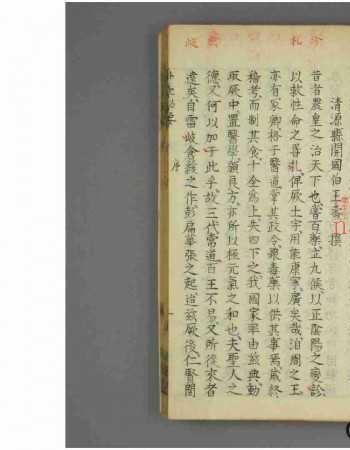 清源縣開國伯王燾撰
昔者農皇之治天下也嘗百藥立九候以正陰陽之變沴
以救性命之昏札俾厥土宇用能康寧廣矣哉洎周之王
亦有冢卿格于醫道掌其政令聚毒藥以供其事焉歲終
稽考而制其食十全為上失四下之我國家率由茲典動
取厥中置醫學頒良方亦所以極元氣之和也夫聖人之
德又何以加于此乎故三代常道百王不易又所從來者
遠矣自雷岐倉緩之作彭扁華張之起迨茲厥後仁賢間
序